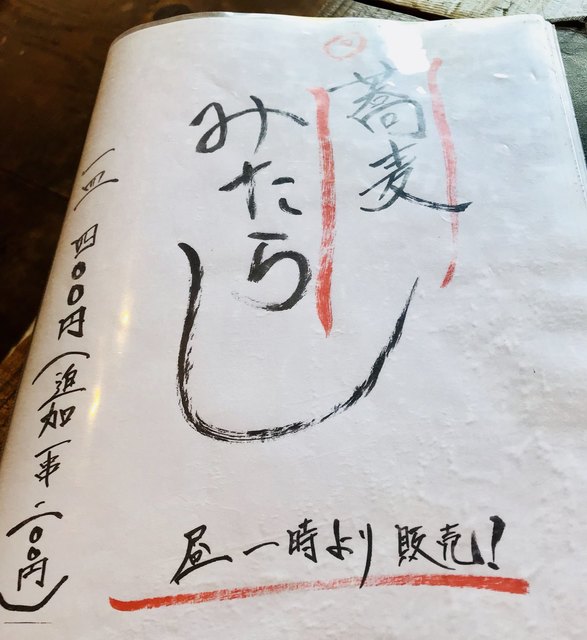 蕎麦
みたらし
一皿 四〇〇円(追加一串二〇〇円)
昼一時より販売!